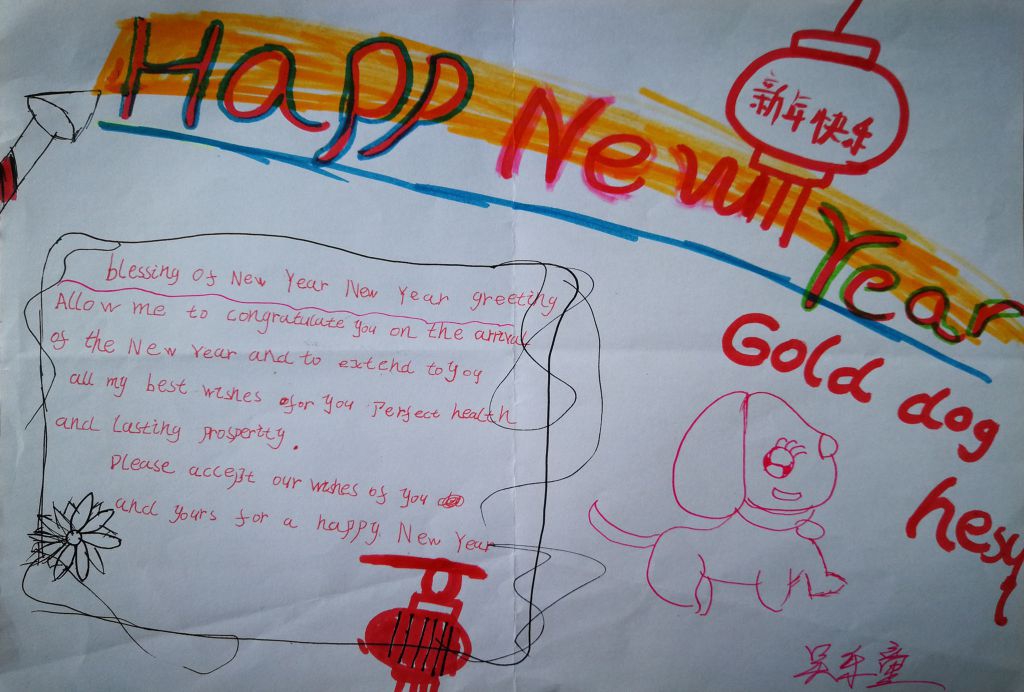 Happy New Year
新年快乐
Gold dog
hesui
blessing of New Year New Year greeting
Allow me to congratulate you on the arrival
of the New Year and to extend to you
all my best wishes for you perfect health
and Lasting prosperity.
Please accept our wishes of you
and yours for a happy New Year
吴乐童